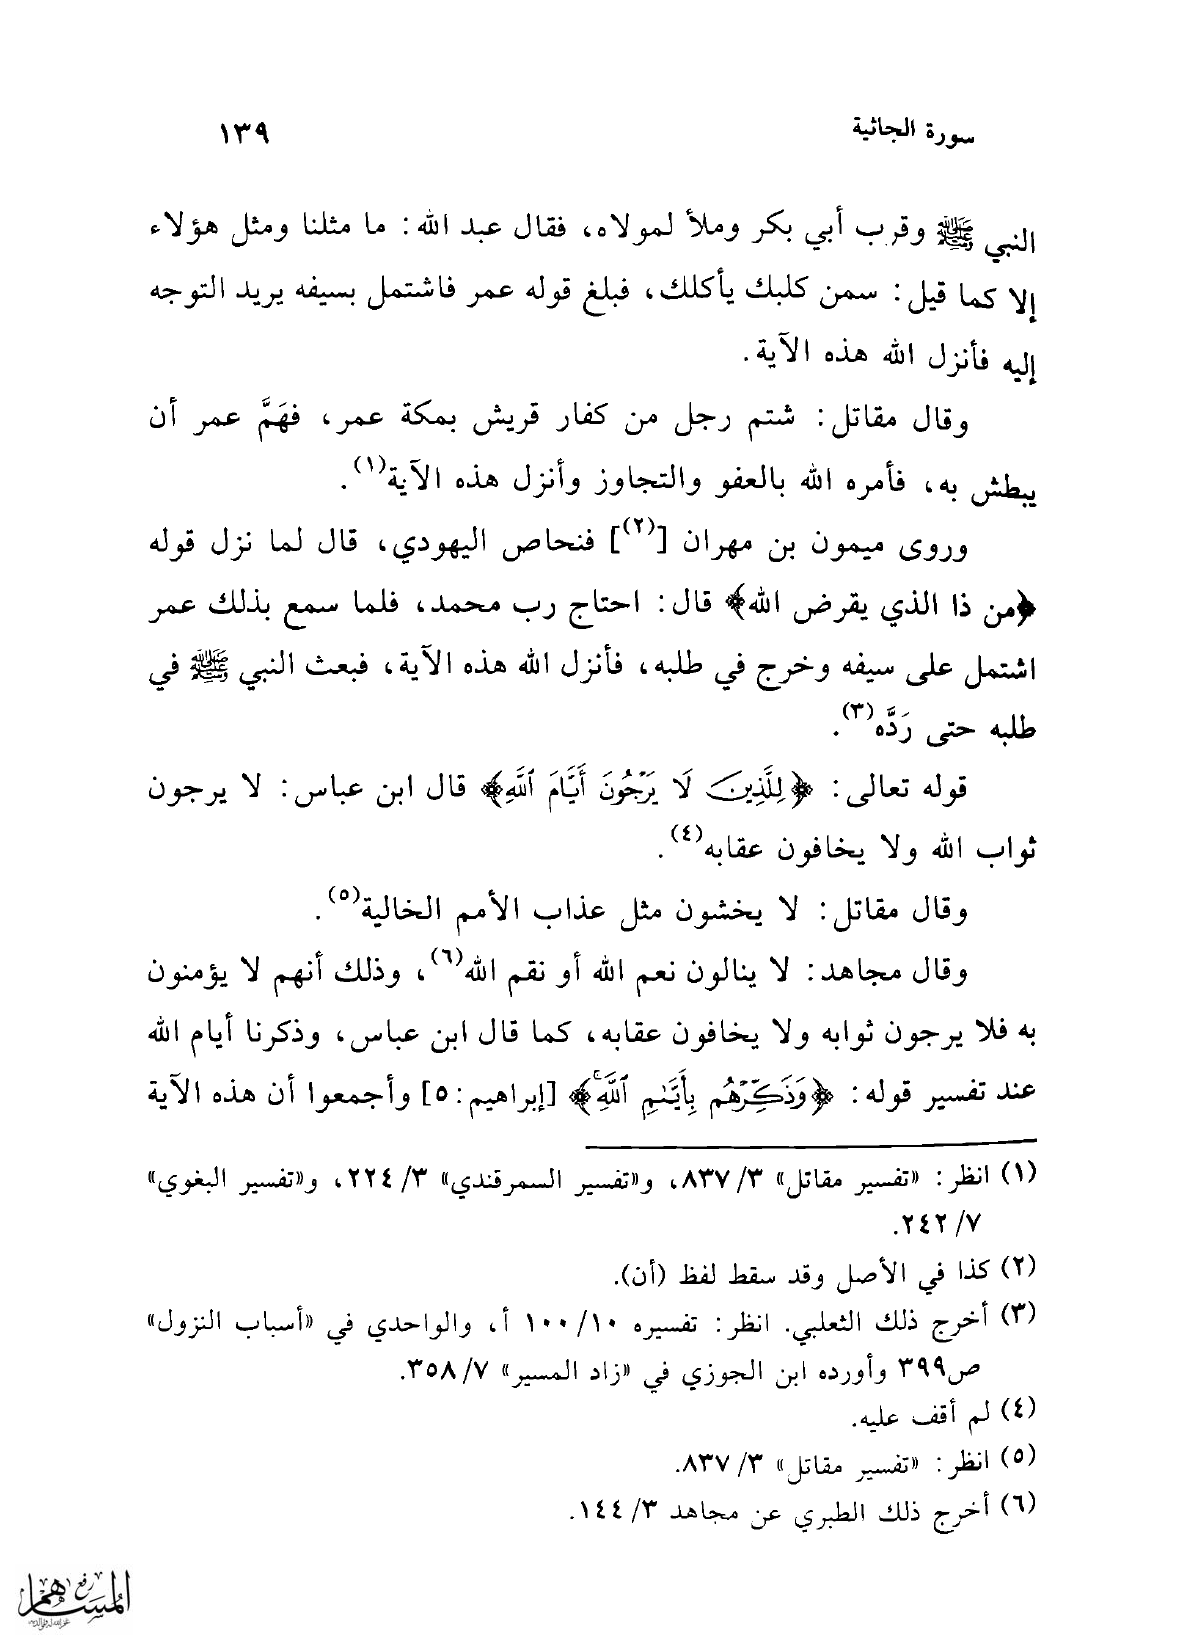 سورة الجاثية ١٣٩
النبي ﷺ وقرب أبي بكر وملأ لمولاه، فقال عبد الله: ما مثلنا ومثل هؤلاء
إلا كما قيل: سمن كلبك يأكلك، فبلغ قوله عمر فاشتمل بسيفه يريد التوجه
إليه فأنزل الله هذه الآية.
وقال مقاتل: شتم رجل من كفار قريش بمكة عمر، فهَمَّ عمر أن
يبطش به، فأمره الله بالعفو والتجاوز وأنزل هذه الآية(١).
وروى ميمون بن مهران [(٢)] فنحاص اليهودي، قال لما نزل قوله
﴿من ذا الذي يقرض الله﴾ قال: احتاج رب محمد، فلما سمع بذلك عمر
اشتمل على سيفه وخرج في طلبه، فأنزل الله هذه الآية، فبعث النبي ﷺ في
طلبه حتى رَدَّه(٣).
قوله تعالى: ﴿لِلَّذِينَ لَا يَرْجُونَ أَيَّامَ ٱللَّهِ﴾ قال ابن عباس: لا يرجون
ثواب الله ولا يخافون عقابه(٤).
وقال مقاتل: لا يخشون مثل عذاب الأمم الخالية(٥).
وقال مجاهد: لا ينالون نعم الله أو نقم الله(٦)، وذلك أنهم لا يؤمنون
به فلا يرجون ثوابه ولا يخافون عقابه، كما قال ابن عباس، وذكرنا أيام الله
عند تفسير قوله: ﴿وَذَكِّرْهُم بِأَيَّىٰمِ ٱللَّهِ ۚ﴾ [إبراهيم: ٥] وأجمعوا أن هذه الآية
(١) انظر: «تفسير مقاتل» ٣/ ٨٣٧، و«تفسير السمرقندي» ٣/ ٢٢٤، و«تفسير البغوي»
٧/ ٢٤٢.
(٢) كذا في الأصل وقد سقط لفظ (أن).
(٣) أخرج ذلك الثعلبي. انظر: تفسيره ١٠/ ١٠٠ أ، والواحدي في «أسباب النزول»
ص٣٩٩ وأورده ابن الجوزي في «زاد المسير» ٧/ ٣٥٨.
(٤) لم أقف عليه.
(٥) انظر: «تفسير مقاتل» ٣/ ٨٣٧.
(٦) أخرج ذلك الطبري عن مجاهد ٣/ ١٤٤.